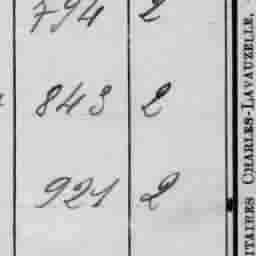 794 2
843 2
921 2
ITAIRES CHARLES-LAVAUZELLE,